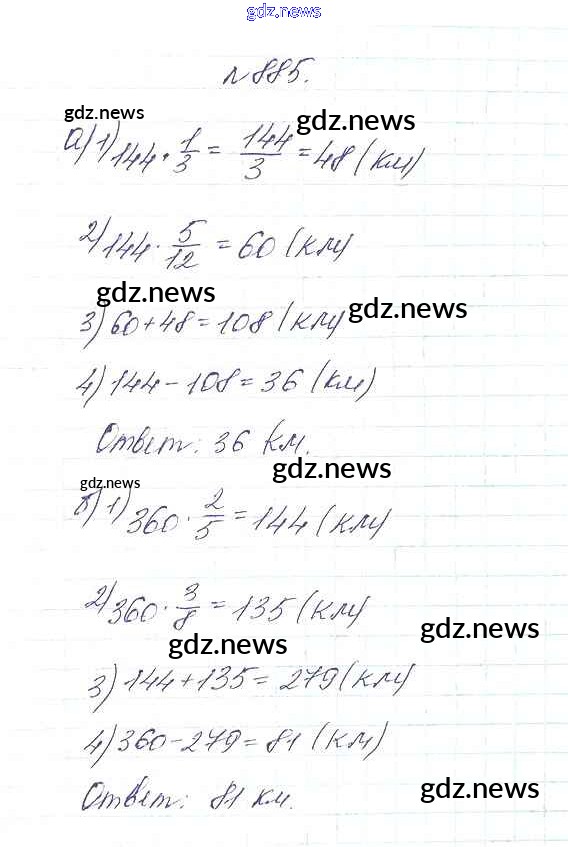 gdz.news
№885.
gdz.news
gdz.news
а) 1) 144 · 1/3 = 144/3 = 48 (км)
2) 144 · 5/12 = 60 (км)
gdz.news
gdz.news
3) 60 + 48 = 108 (км)
4) 144 - 108 = 36 (км)
Ответ: 36 км.
gdz.news
gdz.news
б) 1) 360 · 2/5 = 144 (км)
2) 360 · 3/8 = 135 (км)
gdz.news
gdz.news
3) 144 + 135 = 279 (км)
4) 360 - 279 = 81 (км)
Ответ: 81 км.
gdz.news